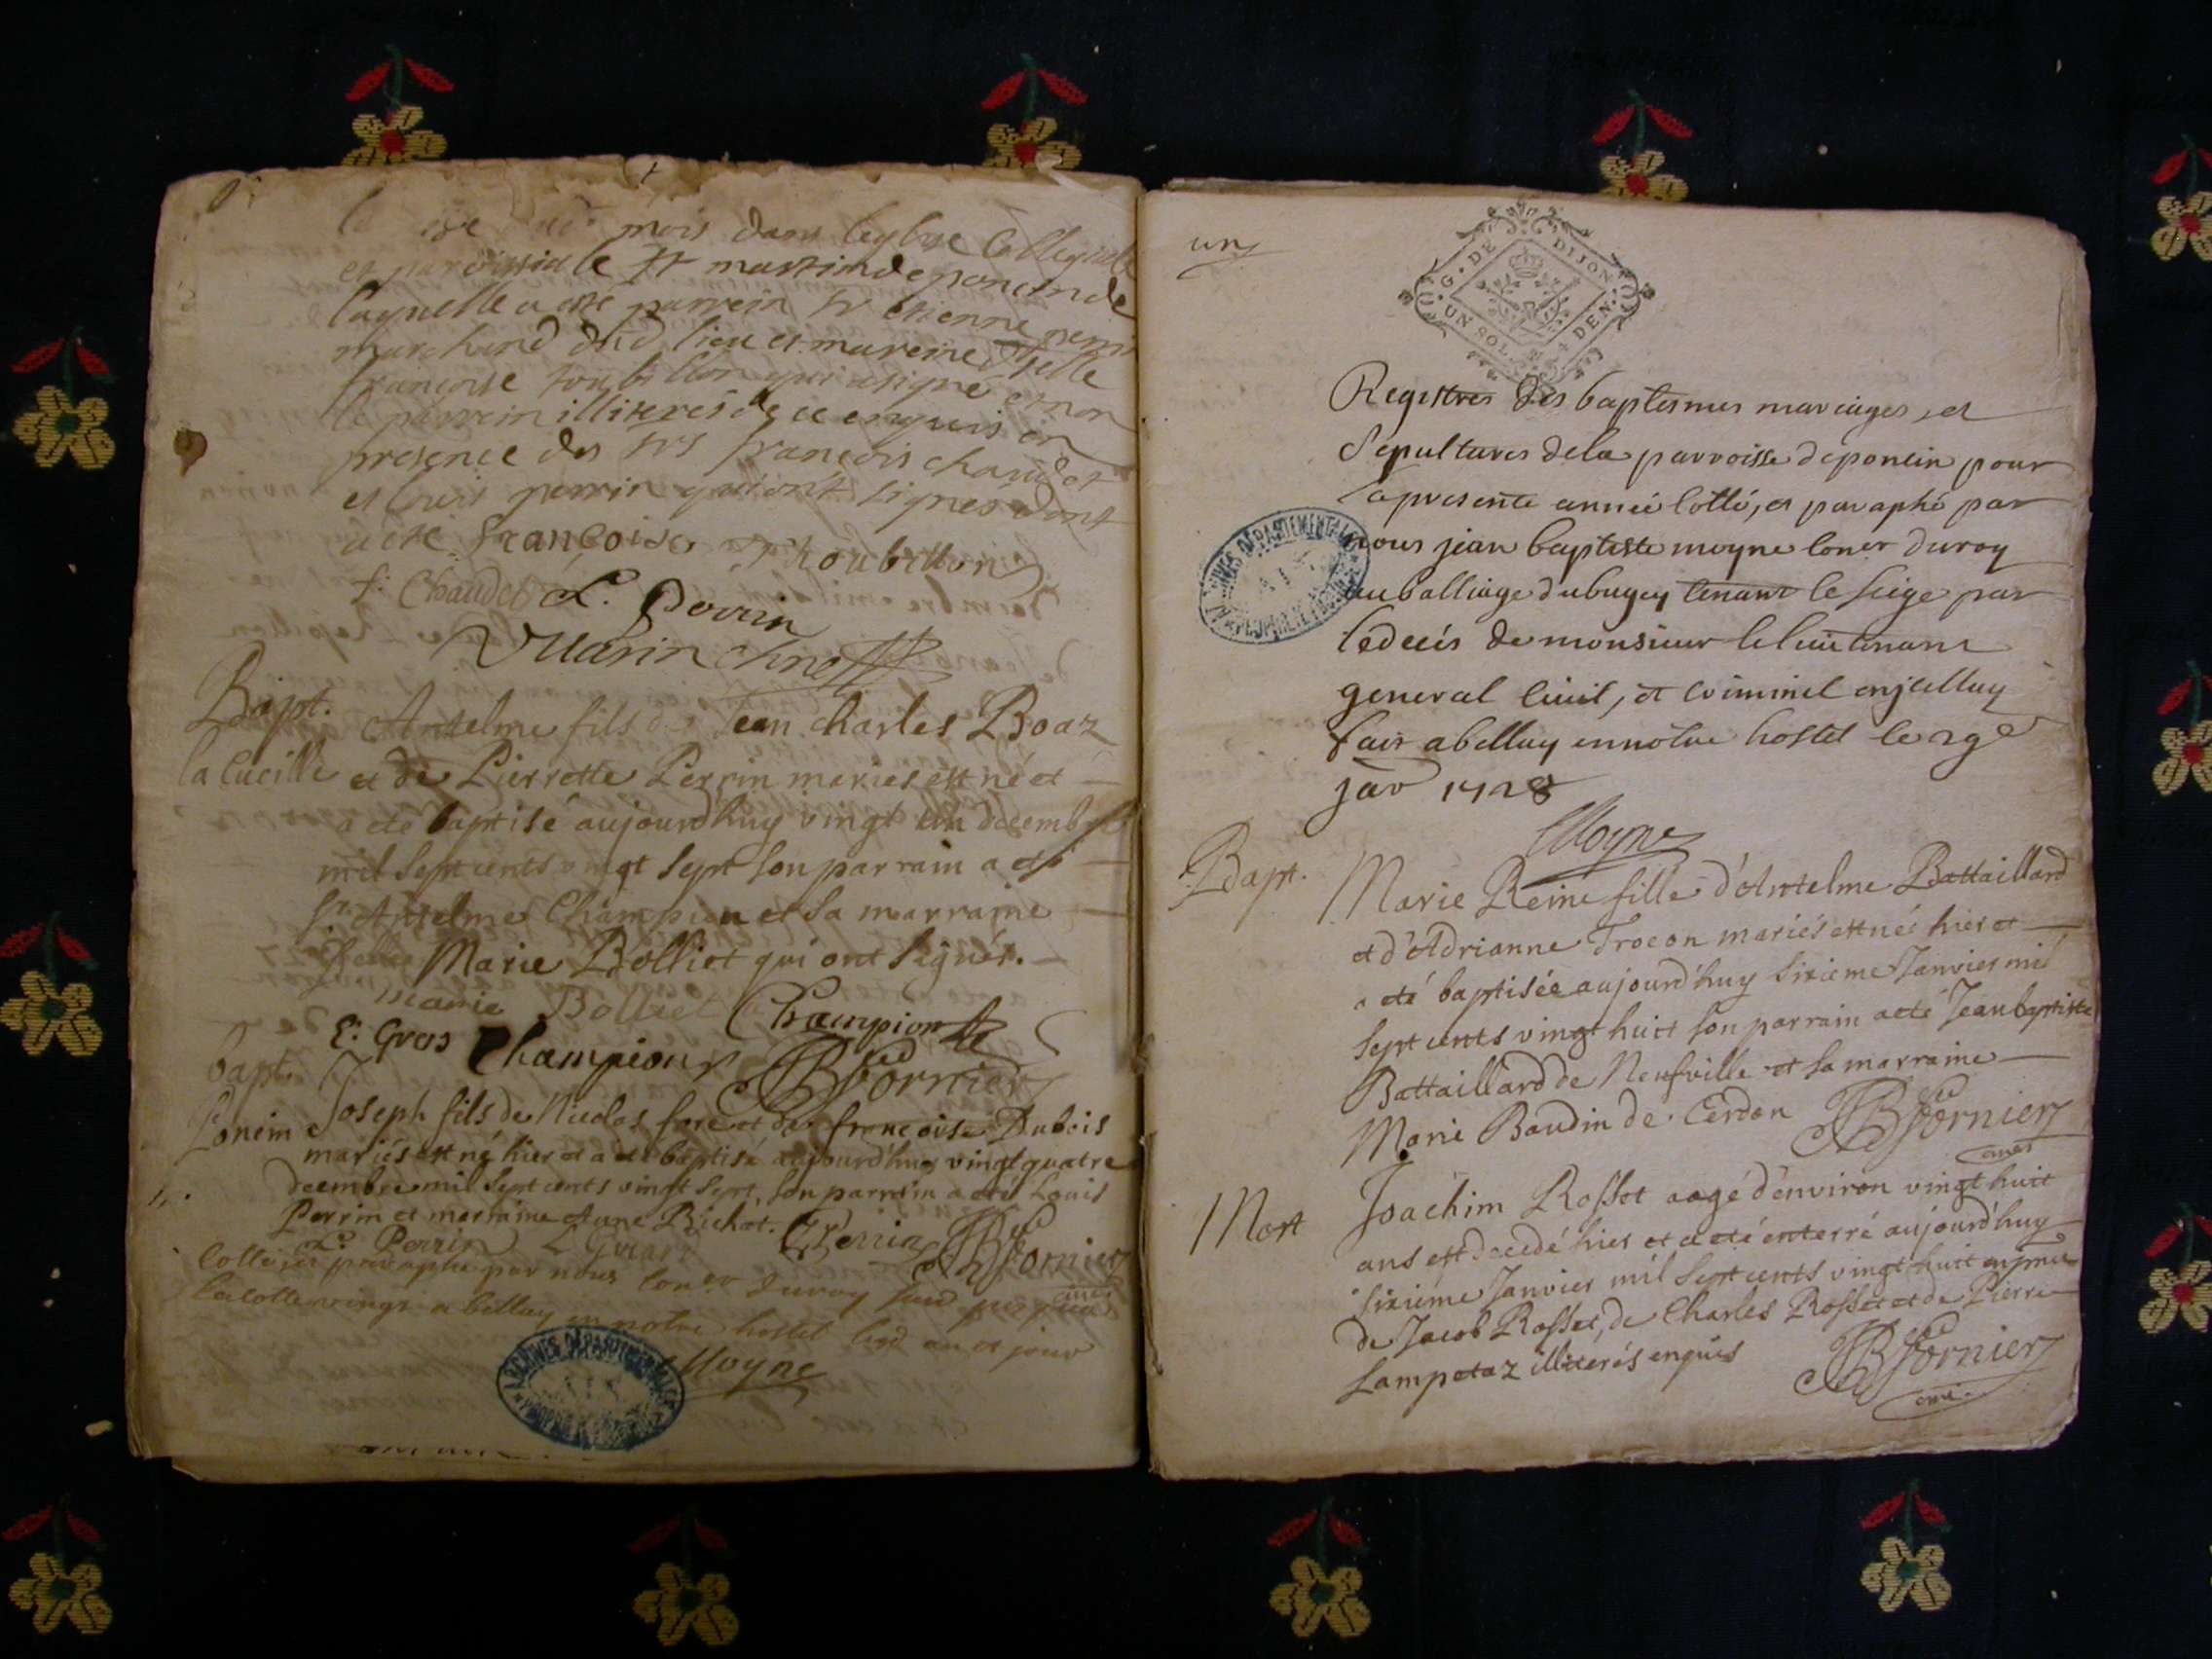 mois dans leglise Collegialle
et parroissialle St martin de poncin de
laquelle a esté parrein Sr etienne perrin
marchand dud lieu et mareine dlle
francoise Thoubillon qui a signé et non
le parrein illiteres de ce enquis en
presence des srs françois chaudet
et louis perrin qui ont signes dont
acte françoise Thoubillon
f: Chaudet L. Perrin
Bapt. Antelme fils de Jean charles Boaz
la Cueille et de Pierrette Perrin mariés est né et
a eté baptisé aujourd'huy vingt un decembre
mil sept cents vingt sept son parrain a eté
sr. Antelme Champion et sa marraine
Dlle Marie Bolliet qui ont signés.
marie Bolliet Champion
E: Gras Champion JB Fornier
bapt. Joseph fils de Nicolas fore et de françoise Dubois
Poncin mariés est né hier et a eté baptisé aujourd'huy vingt quatre
decembre mil sept cents vingt sept, son parrein a eté Louis
Perrin et marraine Anne Richot.
L. Perrin Perrin JB Fornier
Cotté, et paraphé par nous Coner du roy
a belley en notre hostel lesd an et jour
Moyne
un
G. DE DIJON
UN SOL. DEN.
Registres des baptesmes mariages, et
Sepultures de la parroisse de poncin pour
la presente année cotté, et paraphé par
nous jean baptiste moyne coner du roy
au balliage du bugey tenant le siege par
le decés de monsieur le lieutenant
general civil, et criminel en jcelluy
fait a belley en nôtre hostel le 29e
janr 1728
Moyne
Bapt. Marie Reine fille d'Antelme Battaillard
et d'Adrianne Trocon mariés est née hier et
a eté baptisée aujourd'huy sixieme Janvier mil
sept cents vingt huit son parrain a eté Jean baptiste
Battaillard de Neufville et sa marraine
Marie Baudin de Cerdon JB Fornier
curé
Mort Joachim Rosset aagé d'environ vingt huit
ans est decedé hier et a eté enterré aujourd'huy
sixiéme Janvier mil sept cents vingt huit en prnce
de Jacob Rosset, de Charles Rosset et de Pierre
Lampetaz illiterés enquis JB Fornier
curé
ARCHIVES DÉPARTEMENTALES